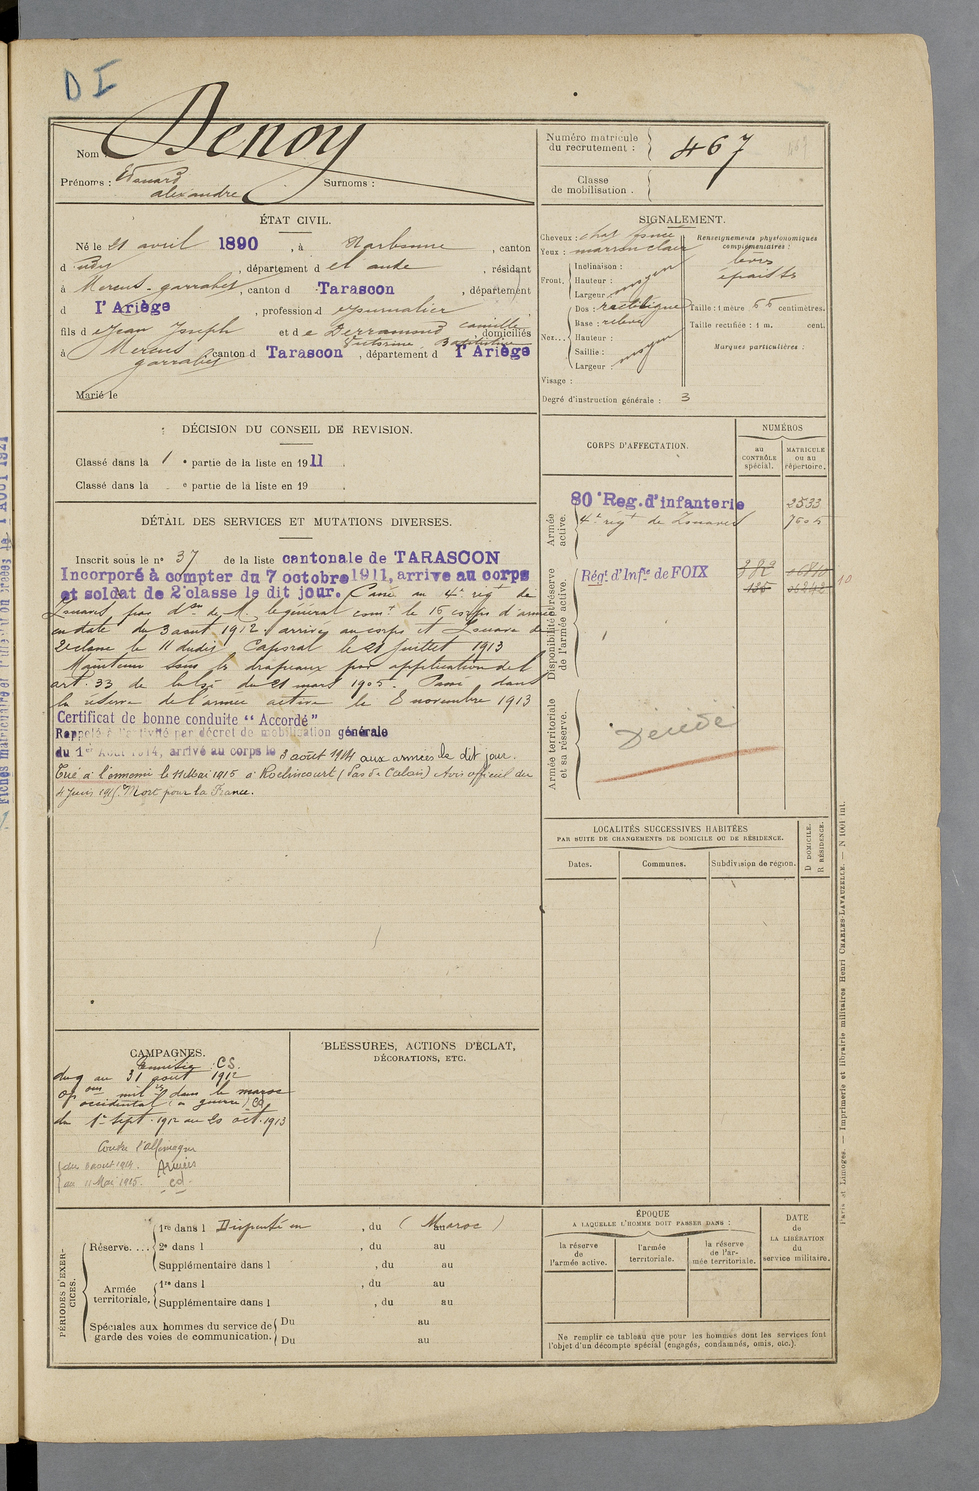 D I
Nom : Denoy
Prénoms : Edouard
alexandre
Surnoms :
Numéro matricule
du recrutement : 467
Classe
de mobilisation .
ÉTAT CIVIL.
Né le 21 avril 1890, à Narbonne, canton
d udy, département d el aude, résidant
à Mercus-garrabet, canton d Tarascon, département
d l'Ariège, profession d journalier
fils d e Jean Joseph et d e Derramond camille
Victorine Baptistine domiciliés
à Mercus
garrabet canton d Tarascon, département d l'Ariège
Marié le
SIGNALEMENT.
Cheveux : chat foncé
Yeux : marron clair
Front. Inclinaison :
Hauteur : moyen
Largeur :
Nez... Dos : rectiligne
Base : relevé
Hauteur :
Saillie : moyen
Largeur :
Visage :
Degré d'instruction générale : 3
Renseignements physionomiques
complémentaires :
lèvres
épaisses
Taille : 1 mètre 66 centimètres.
Taille rectifiée : 1 m. cent.
Marques particulières :
DÉCISION DU CONSEIL DE REVISION.
Classé dans la 1e partie de la liste en 1911.
Classé dans la e partie de la liste en 19 .
DÉTAIL DES SERVICES ET MUTATIONS DIVERSES.
Inscrit sous le n° 37 de la liste cantonale de TARASCON
Incorporé à compter du 7 octobre 1911, arrive au corps
et soldat de 2e classe le dit jour. Passé au 4e régt de
Zouaves par don de M. le général comt le 16 corps d'armée
en date du 3 aout 1912. arrivé au corps et Zouave de
2e classe le 11 dudit Caporal le 21 juillet 1913
Maintenu sous les drapeaux par application de l
art. 33 de la loi du 21 mars 1905. Passé dans
la réserve de l'armée active le 8 novembre 1913
Certificat de bonne conduite "Accordé"
Rappelé à l'activité par décret de mobilisation générale
du 1er Août 1914, arrivé au corps le 3 août 1914 aux armées le dit jour.
Tué à l'ennemi le 11 Mai 1915 à Roclincourt (Pas de Calais) Avis officiel du
4 Juin 1915. Mort pour la France.
CORPS D'AFFECTATION.
NUMÉROS
au
CONTRÔLE
spécial.
MATRICULE
ou au
répertoire.
Armée
active.
80e Reg. d'infanterie 2533
4e régt de Zouaves 7605
Disponibilité et réserve
de l'armée active.
Régt d'Infie de FOIX
135
10
Armée territoriale
et sa réserve.
Décédé
LOCALITÉS SUCCESSIVES HABITÉES
PAR SUITE DE CHANGEMENTS DE DOMICILE OU DE RÉSIDENCE.
Dates.
Communes.
Subdivision de région.
D DOMICILE.
R RÉSIDENCE.
CAMPAGNES.
Tunisie CS.
du 9 au 31 aout 1912
opons milres dans le maroc
occidental (en guerre) Cd
du 1er Sept. 1912 au 20 oct. 1913
Contre l'Allemagne
du 3 août 1914 Armées
au 11 Mai 1915. cd.
BLESSURES, ACTIONS D'ÉCLAT,
DÉCORATIONS, ETC.
PÉRIODES D'EXER-
CICES.
Réserve.... 1re dans l Dispensé en, du (Maroc) au
2e dans l , du au
Supplémentaire dans l , du au
Armée
territoriale. 1re dans l , du au
Supplémentaire dans l , du au
Spéciales aux hommes du service de
garde des voies de communication. Du au
Du au
ÉPOQUE
A LAQUELLE L'HOMME DOIT PASSER DANS :
la réserve
de
l'armée active.
l'armée
territoriale.
la réserve
de l'ar-
mée territoriale.
DATE
de
LA LIBÉRATION
du
service militaire.
Ne remplir ce tableau que pour les hommes dont les services font
l'objet d'un décompte spécial (engagés, condamnés, omis, etc.).
Paris et Limoges. — Imprimerie et librairie militaires Henri CHARLES-LAVAUZELLE. — N 1001 int.